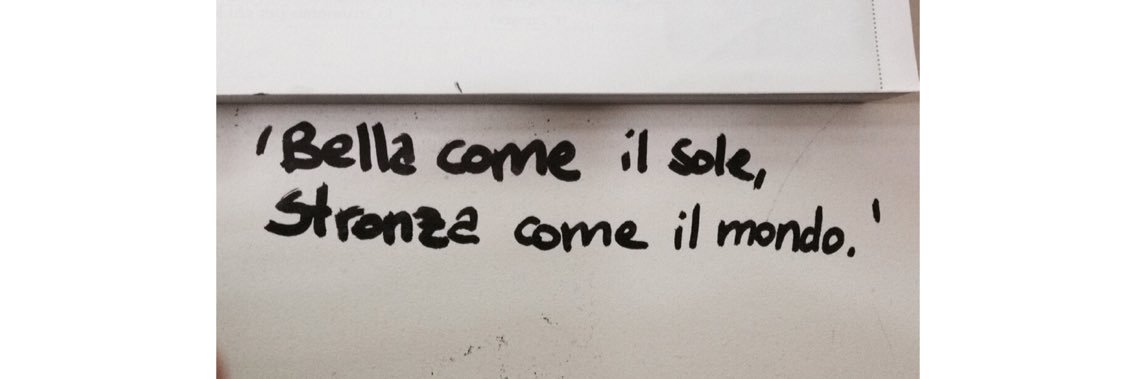 'Bella come il sole,
Stronza come il mondo.'